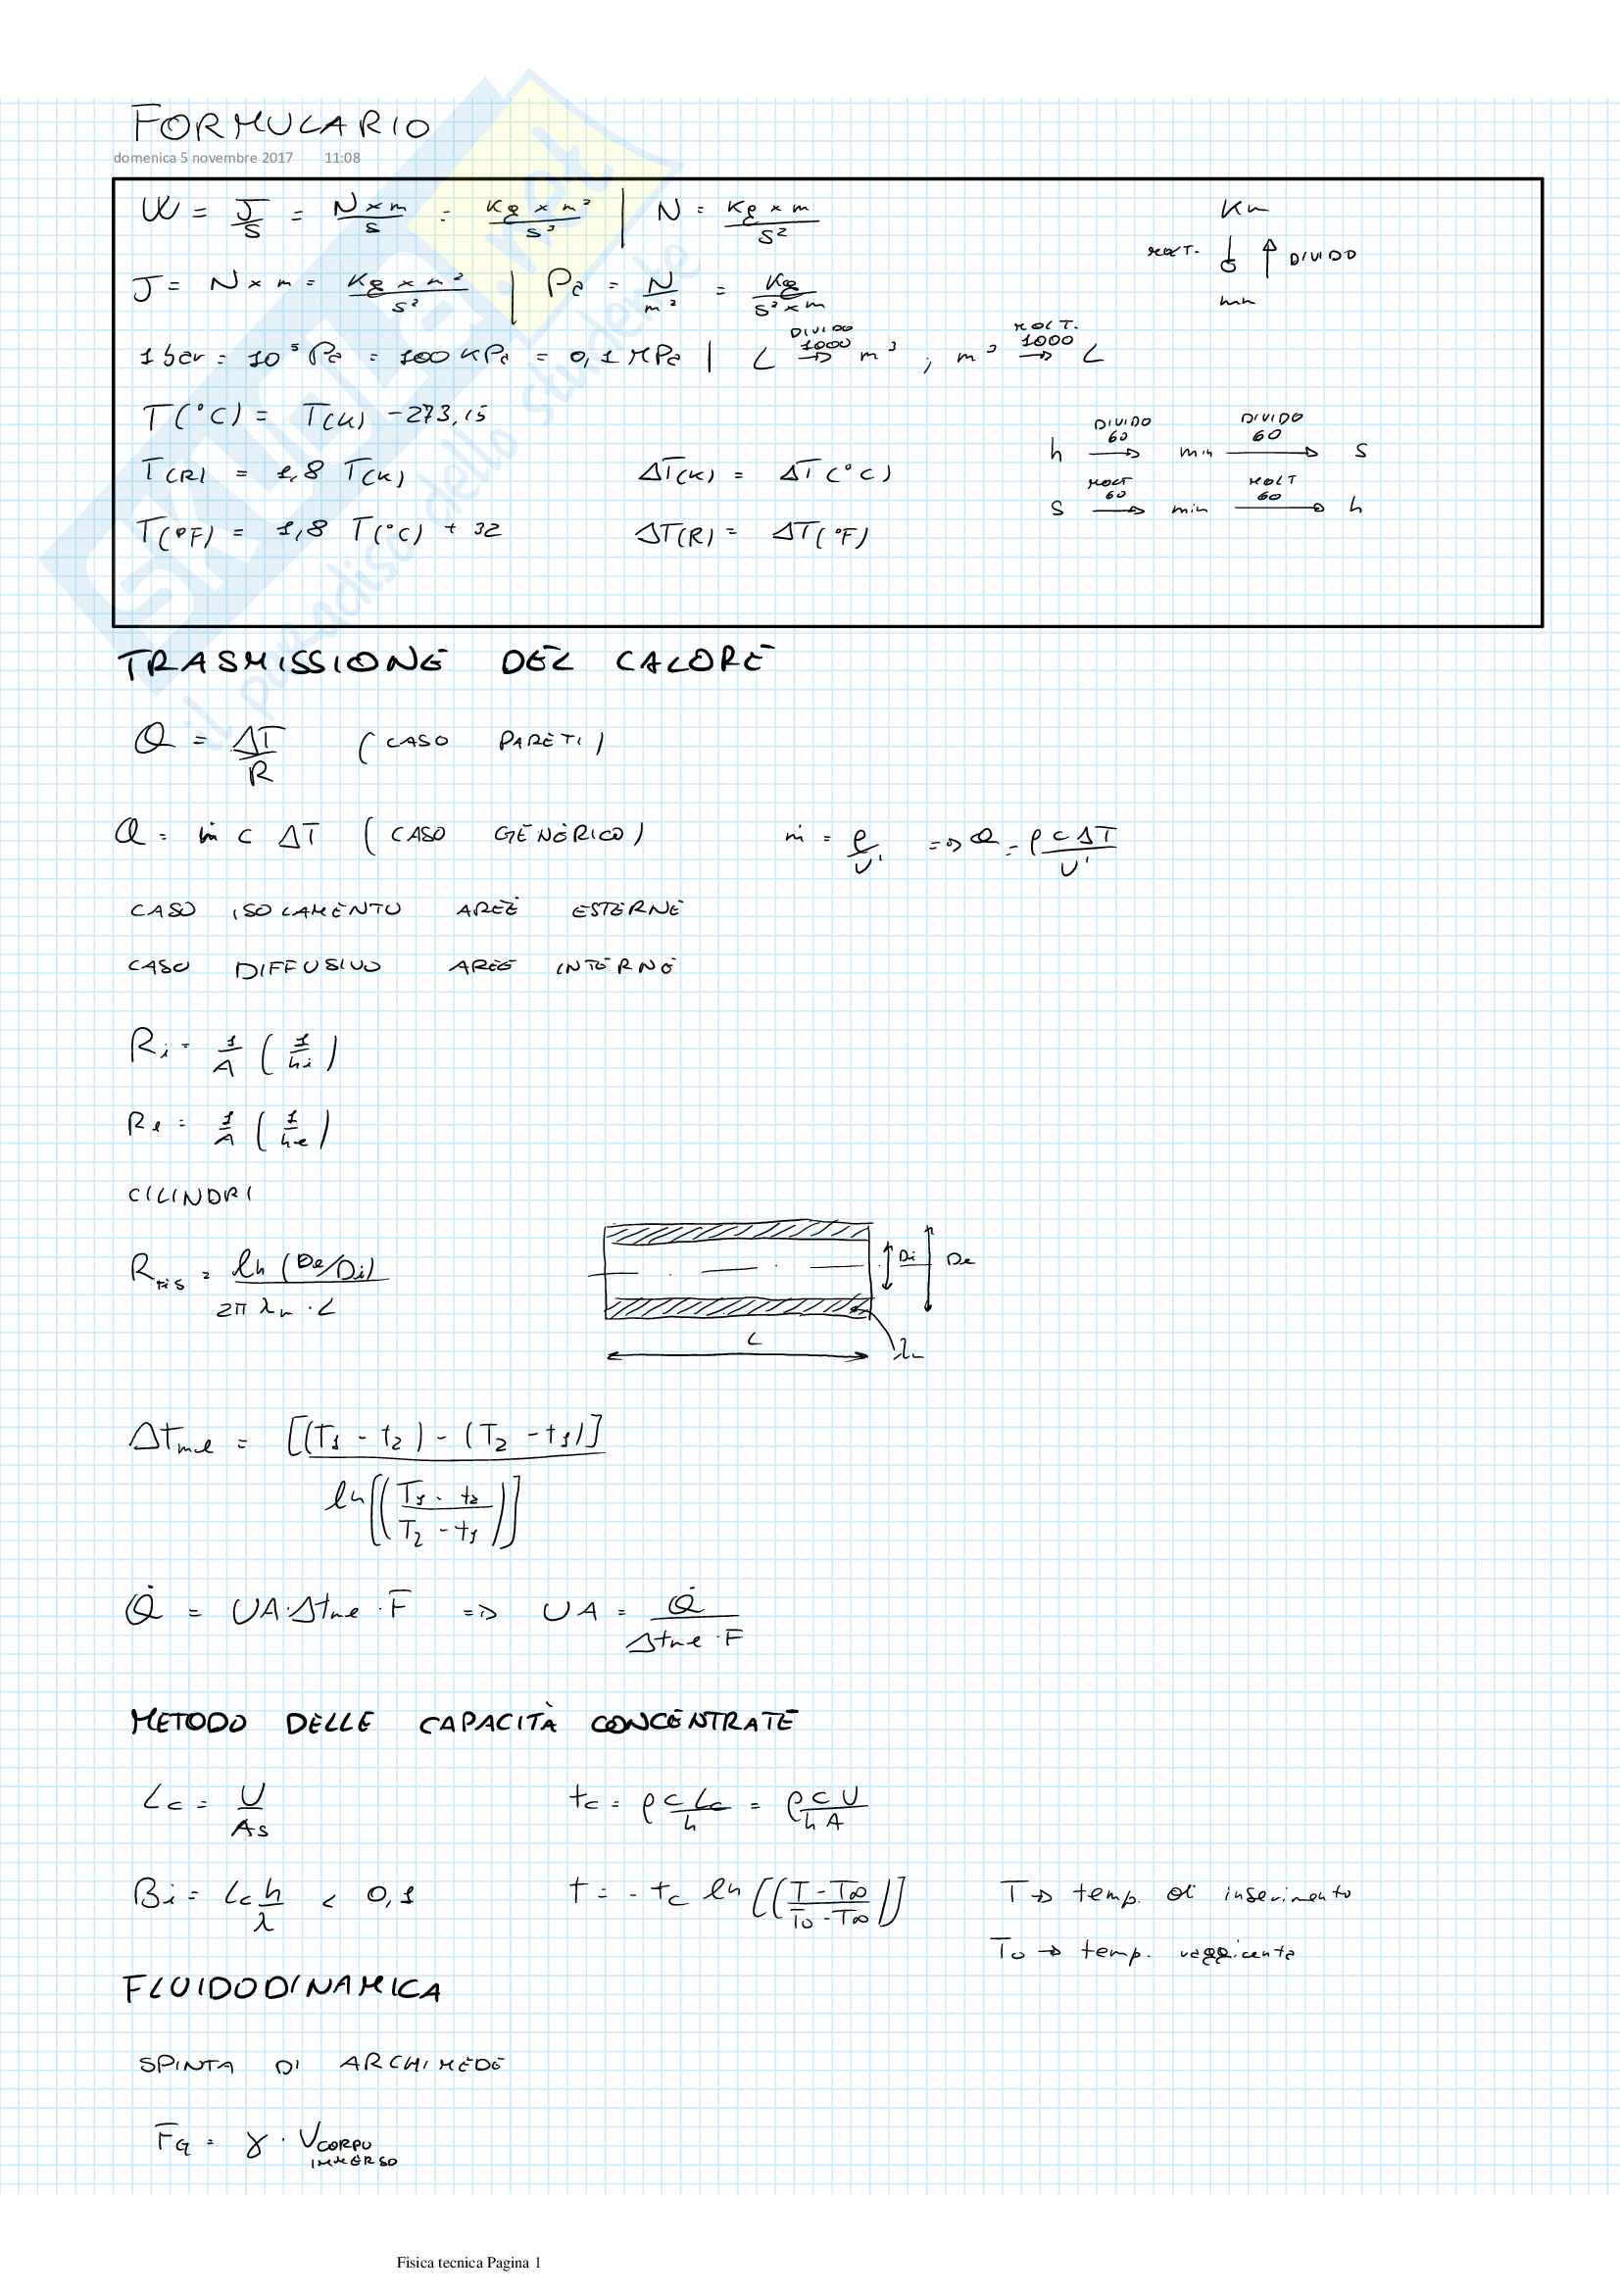 FORMULARIO
domenica 5 novembre 2017 11:08
W = J/s = N×m/s = Kg×m²/s³ | N = Kg×m/s²
Km
MOLT. ↓ ↑ DIVIDO
mm
J = N×m = Kg×m²/s² | Pa = N/m² = Kg/s²×m
1 bar = 10⁵ Pa = 100 KPa = 0,1 MPa | L →(DIVIDO 1000) m³ ; m³ →(MOLT. 1000) L
T(°C) = T(K) -273,15
h →(DIVIDO 60) min →(DIVIDO 60) s
T(R) = 1,8 T(K) ΔT(K) = ΔT(°C)
s →(MOLT 60) min →(MOLT 60) h
T(°F) = 1,8 T(°C) + 32 ΔT(R) = ΔT(°F)
TRASMISSIONE DEL CALORE
Q = ΔT/R (CASO PARETI)
Q = ṁ c ΔT (CASO GENERICO) ṁ = ρ/V' => Q = ρ c ΔT/V'
CASO ISOLAMENTO AREE ESTERNE
CASO DIFFUSIVO AREE INTERNE
Ri = 1/A (1/hi)
Re = 1/A (1/he)
CILINDRI
Rtis = ln (De/Di)/2π λm · L
Di De
L λm
Δtml = [(T1 - t2) - (T2 - t1)]/ln[((T1 - t2)/(T2 - t1))]
Q̇ = UA·Δtml·F => UA = Q̇/Δtml·F
METODO DELLE CAPACITÀ CONCENTRATE
Lc = V/As tc = ρ c Lc/h = ρ c V/h A
Bi = Lc h/λ < 0,1 t = - tc ln [((T - T∞)/(T0 - T∞))] T → temp. di inserimento
T0 → temp. raggiunta
FLUIDODINAMICA
SPINTA DI ARCHIMEDE
FG = γ · V CORPO IMMERSO
Fisica tecnica Pagina 1
SKUOLA.net
il paradiso dello studente